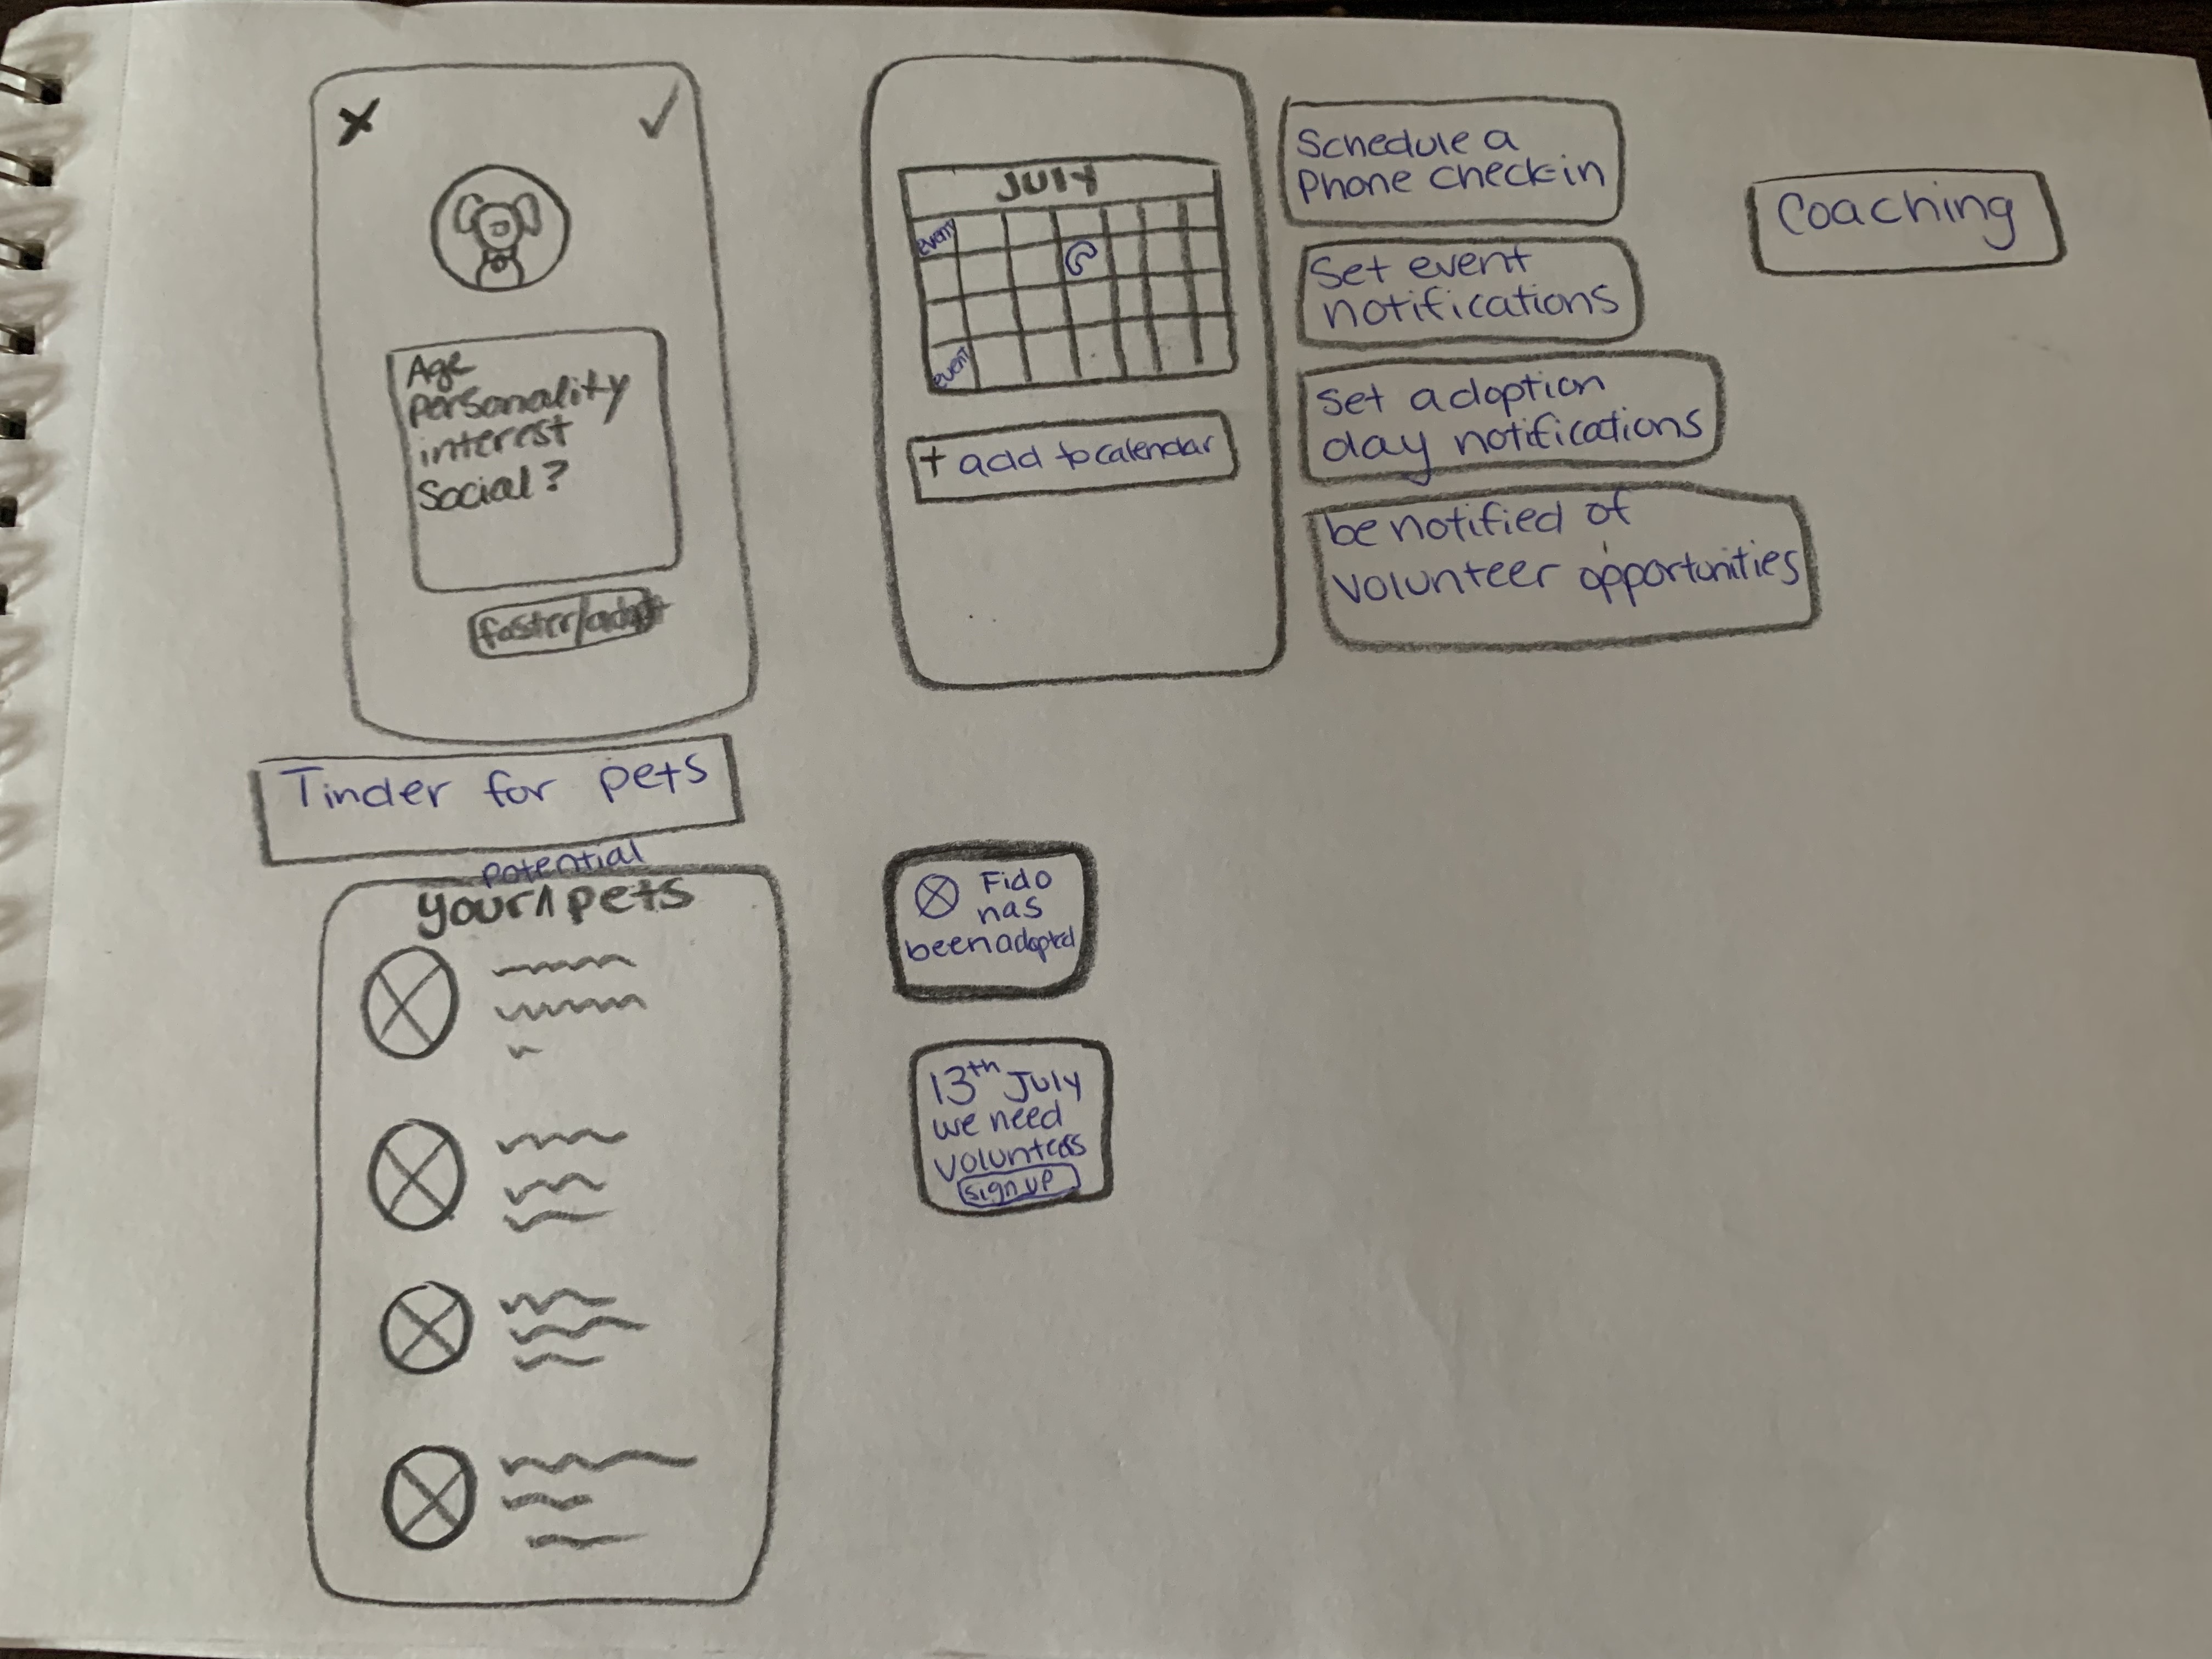 Age
personality
interest
Social?
foster/adopt
Tinder for pets
potential
your^pets
JULY
event
event
+ add to calendar
Schedule a
Phone check-in
Set event
notifications
Set adoption
day notifications
be notified of
volunteer opportunities
Coaching
Fido
has
been adopted
13th July
we need
volunteers
sign up